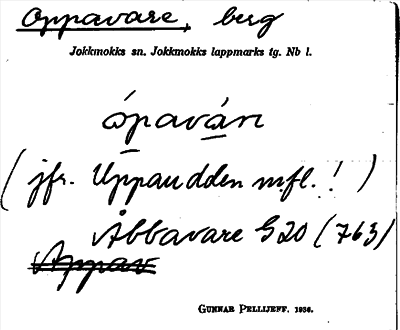 Oppavare, berg
Jokkmokks sn. Jokkmokks lappmarks tg. Nb l.
ópaván
(jfr. Uppaudden m.fl.!)
Åbbavare G20 (763)
Appav
GUNNAR PELLIJEFF. 1936.